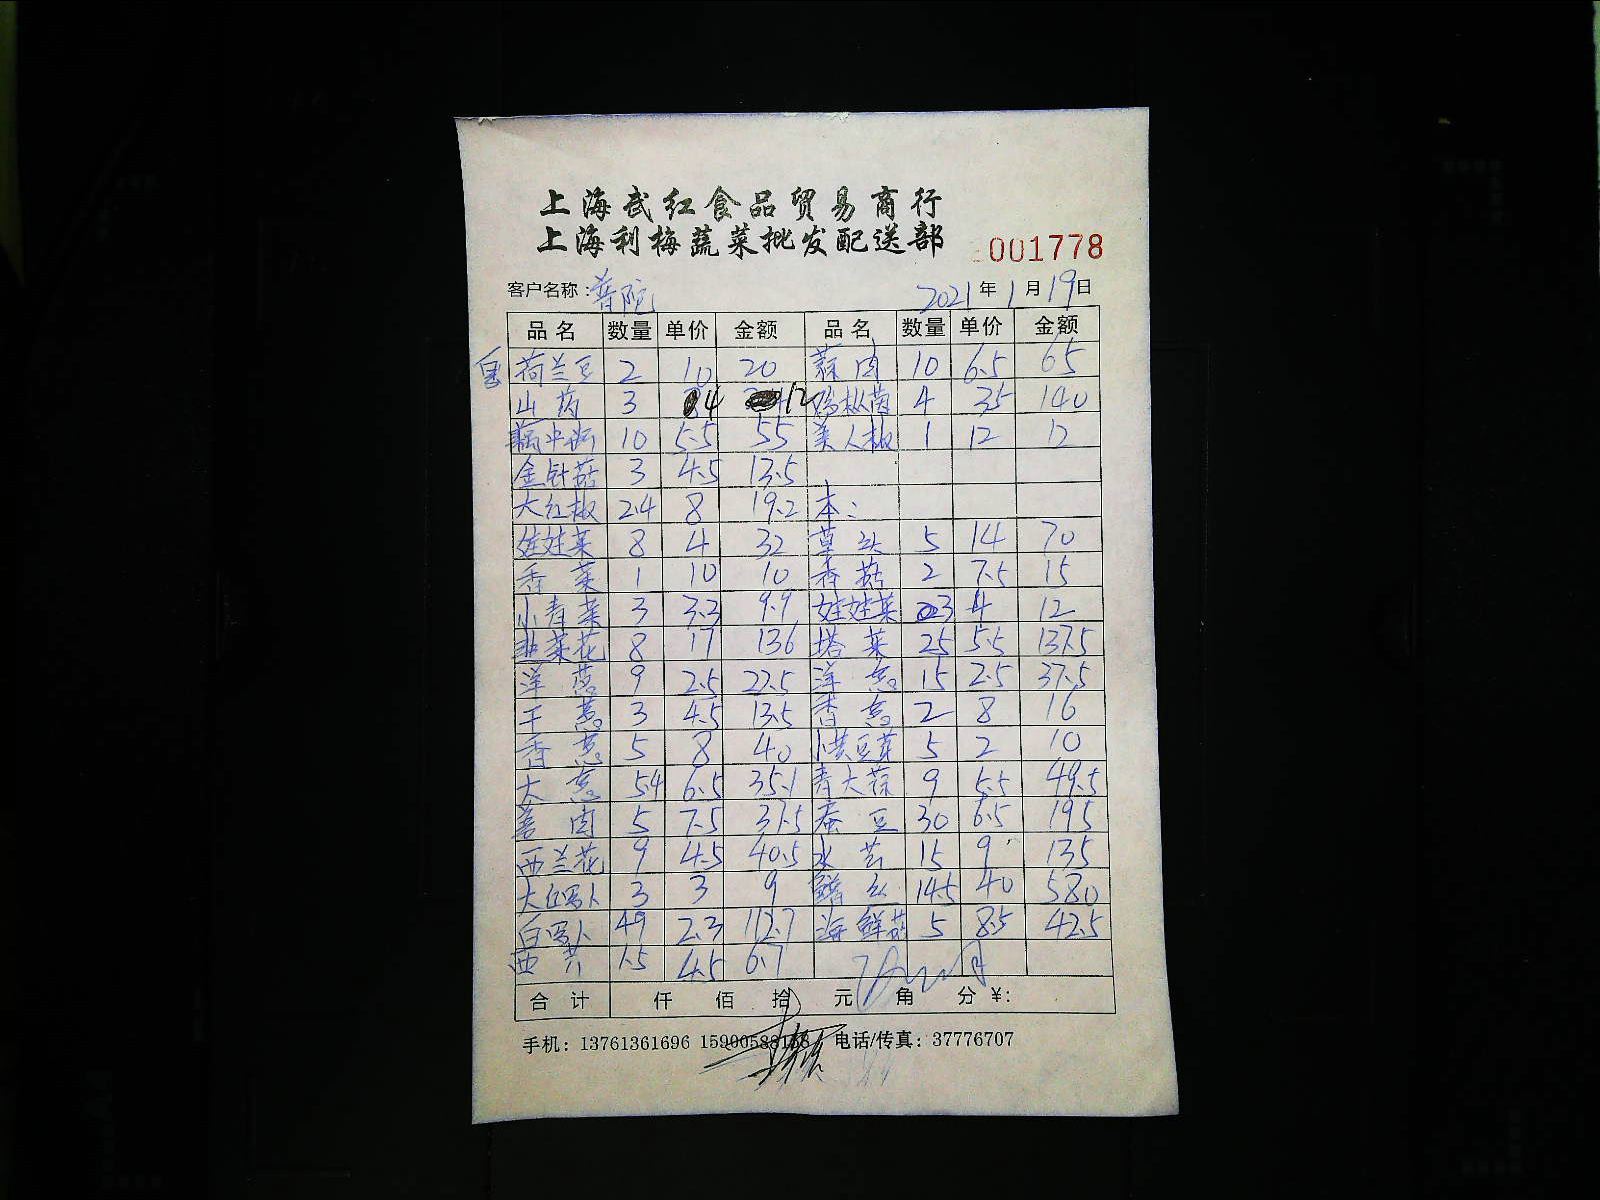 上海武红食品贸易商行
上海利梅蔬菜批发配送部
001778
客户名称：普陀 2021年1月19日
品名 数量 单价 金额 品名 数量 单价 金额
荷兰豆 2 10 20 蒜肉 10 6.5 65
山药 3 4 12 鸡枞菌 4 35 140
10 5.5 55 美人椒 1 12 12
金针菇 3 4.5 13.5
大红椒 2.4 8 19.2 本：
娃娃菜 8 4 32 草头 5 14 70
香菜 1 10 10 香菇 2 7.5 15
小青菜 3 3.3 9.9 娃娃菜 3 4 12
韭菜花 8 17 136 塔菜 25 5.5 137.5
洋葱 9 2.5 22.5 洋葱 15 2.5 37.5
干葱 3 4.5 13.5 香葱 2 8 16
香葱 5 8 40 豆芽 5 2 10
大葱 5.4 6.5 35.1 青大蒜 9 5.5 49.5
姜肉 5 7.5 37.5 蚕豆 30 6.5 195
西兰花 9 4.5 40.5 水芹 15 9 135
大红萝卜 3 3 9 鳝丝 14.5 40 580
白萝卜 49 2.3 112.7 海鲜菇 5 8.5 42.5
西芹 1.5 4.5 6.7
合计 仟 佰 拾 元 角 分 ¥：
手机：13761361696 15900588168 电话/传真：37776707